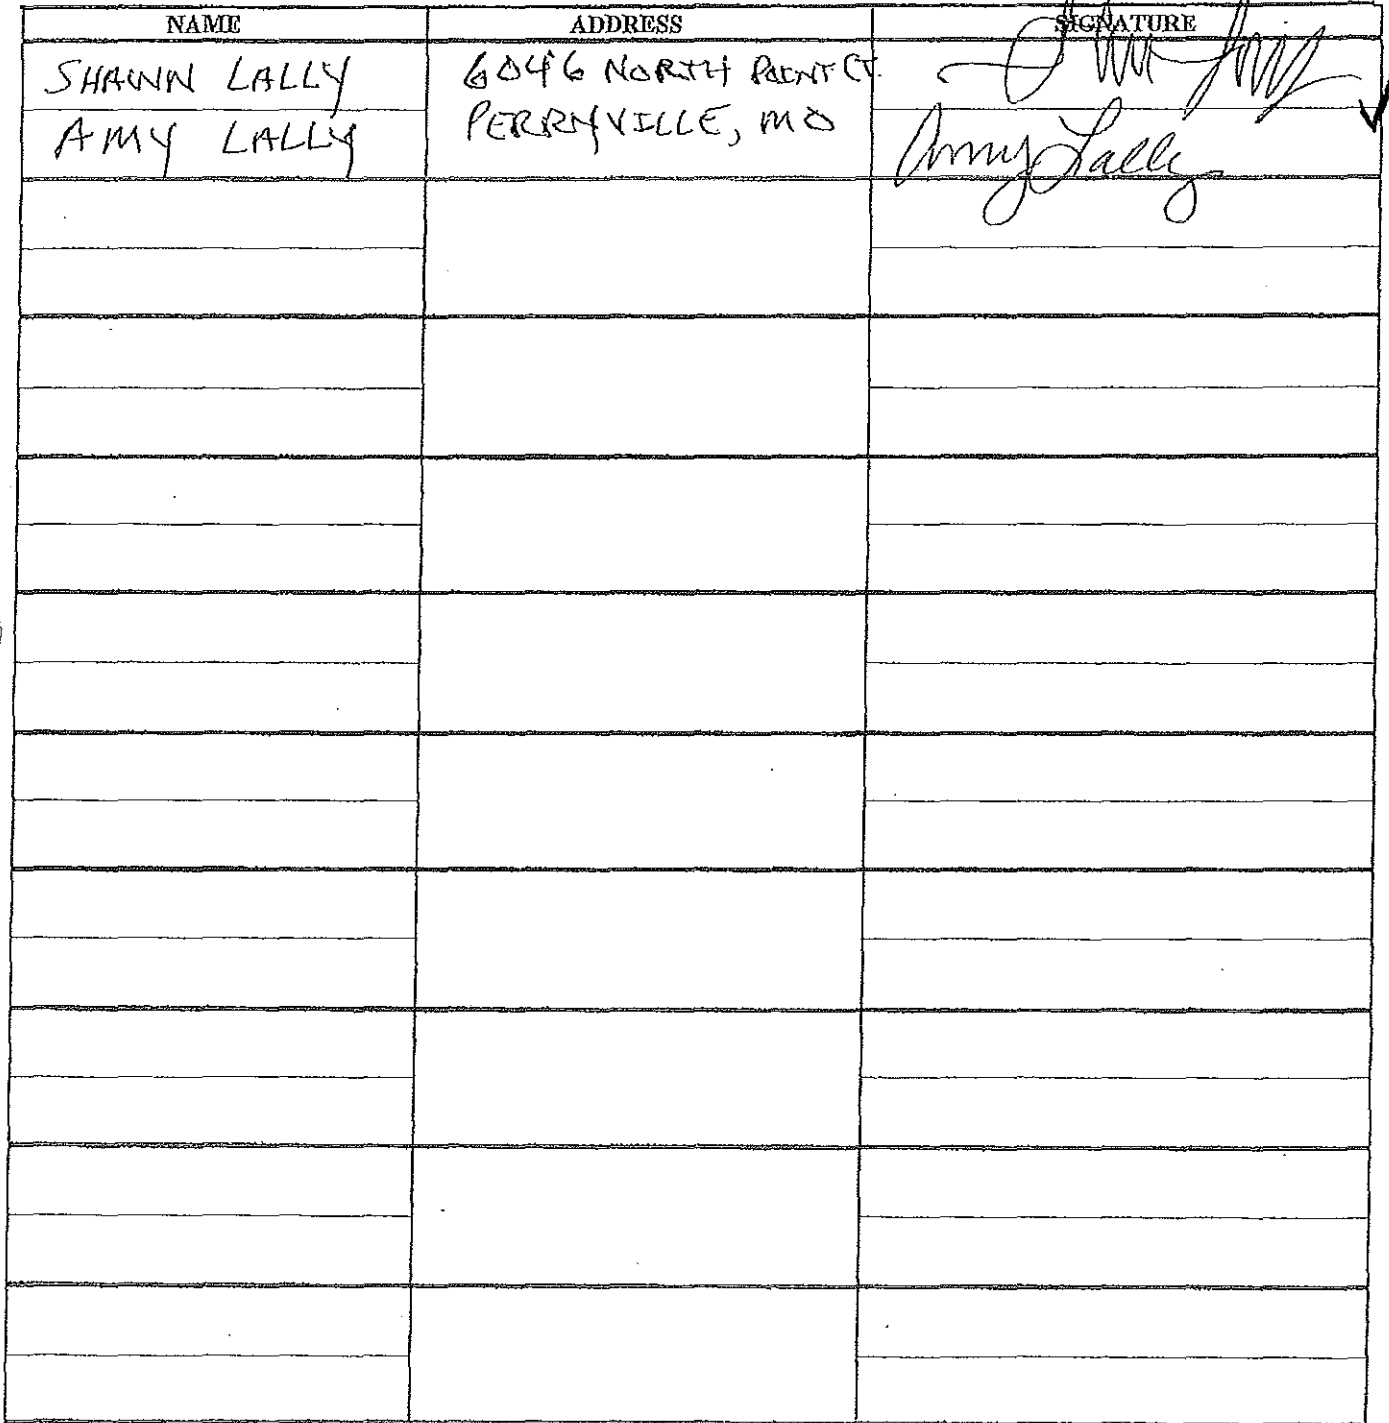 NAME ADDRESS SIGNATURE
SHAWN LALLY 6046 NORTH POINT CT.
AMY LALLY PERRYVILLE, MO Amy Lally